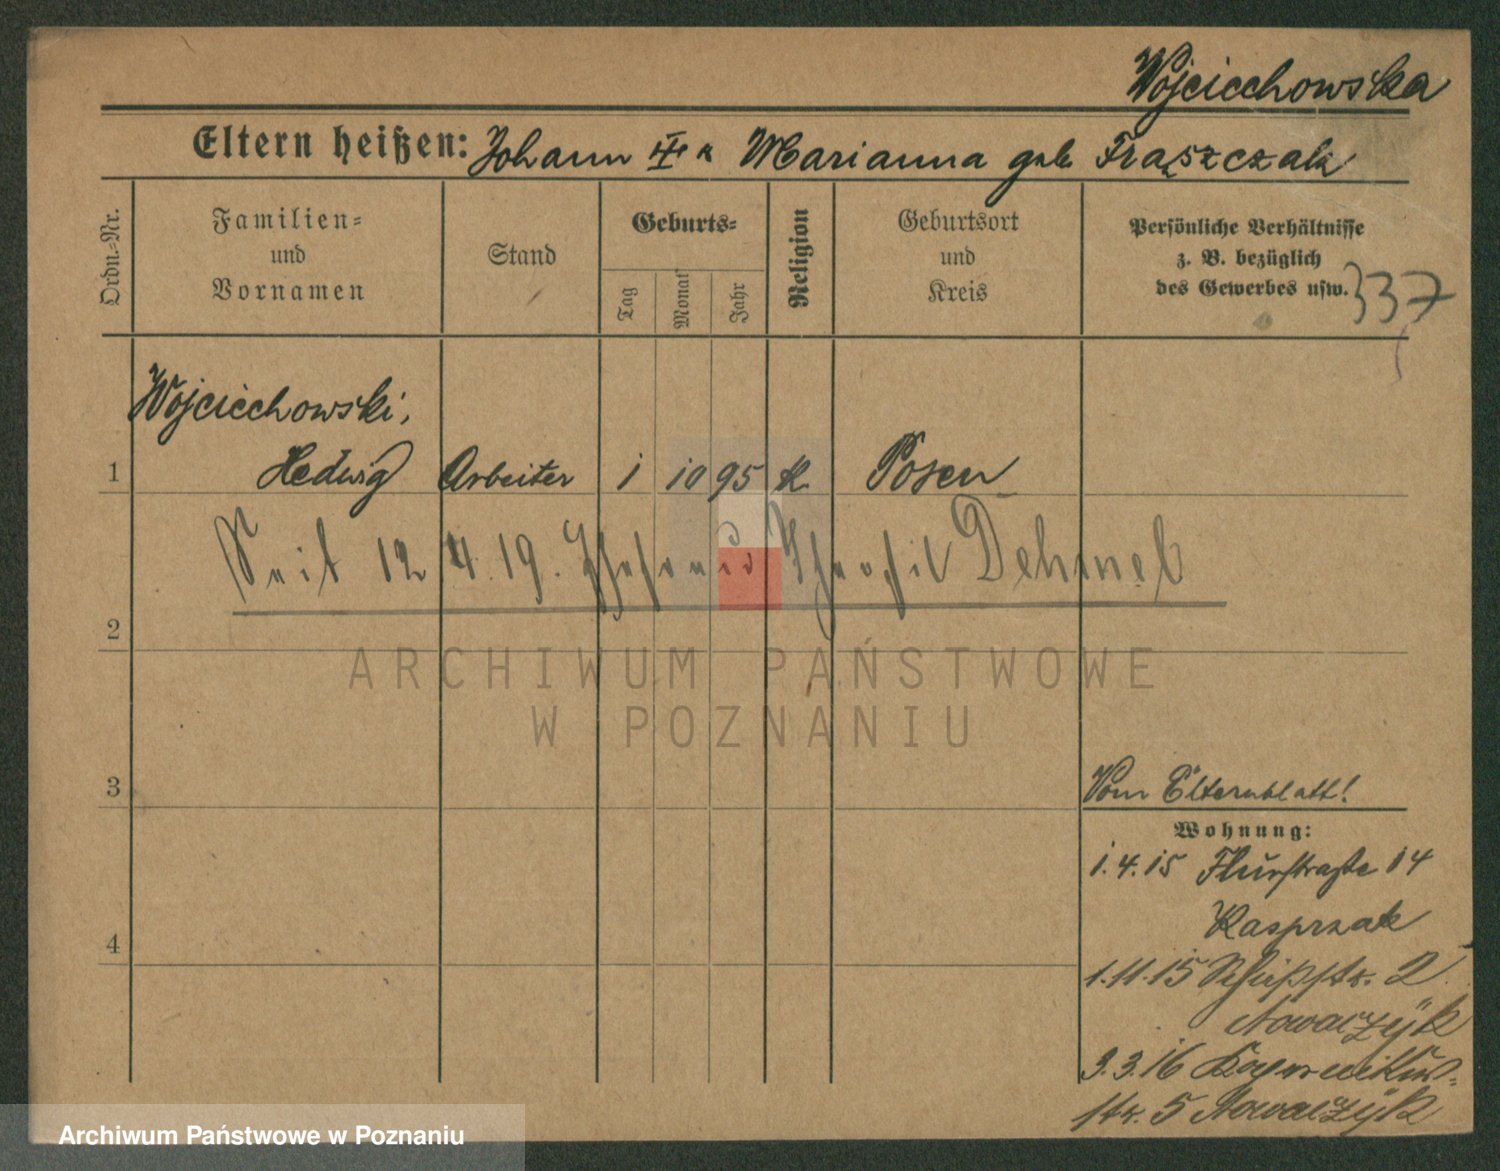 Wojciechowska
Eltern heißen: Johann u Marianna geb Frąszczak
Ordn.-Nr.
Familien-
und
Vornamen
Stand
Geburts-
Tag
Monat
Jahr
Religion
Geburtsort
und
Kreis
Persönliche Verhältnisse
z. B. bezüglich
des Gewerbes usw.
337
Wojciechowski,
1 Hedwig Arbeiter 1 10 95 K. Posen
Seit 12 4. 19. Ehefrau d Theofil Dehmel
2
ARCHIWUM PAŃSTWOWE
W POZNANIU
3
Vom Elternblatt!
Wohnung:
1.4.15 Flurstraße 14
Kasprzak
4
1.11.15 Schifstr. 2
Nowaczÿk
3.3.16
str. 5 Nowaczÿk
Archiwum Państwowe w Poznaniu